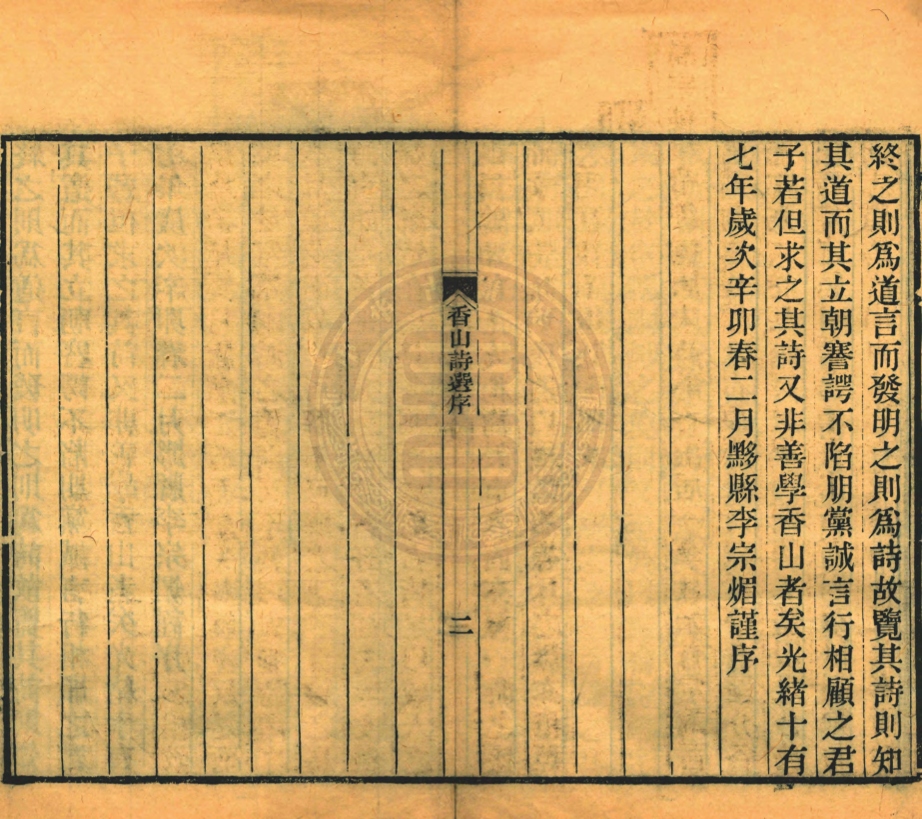 終之則爲道言而發明之則爲詩故覽其詩則知
其道而其立朝謇諤不陷朋黨誠言行相顧之君
子若但求之其詩又非善學香山者矣光緒十有
七年歲次辛卯春二月黟縣李宗煝謹序
香山詩選序
二